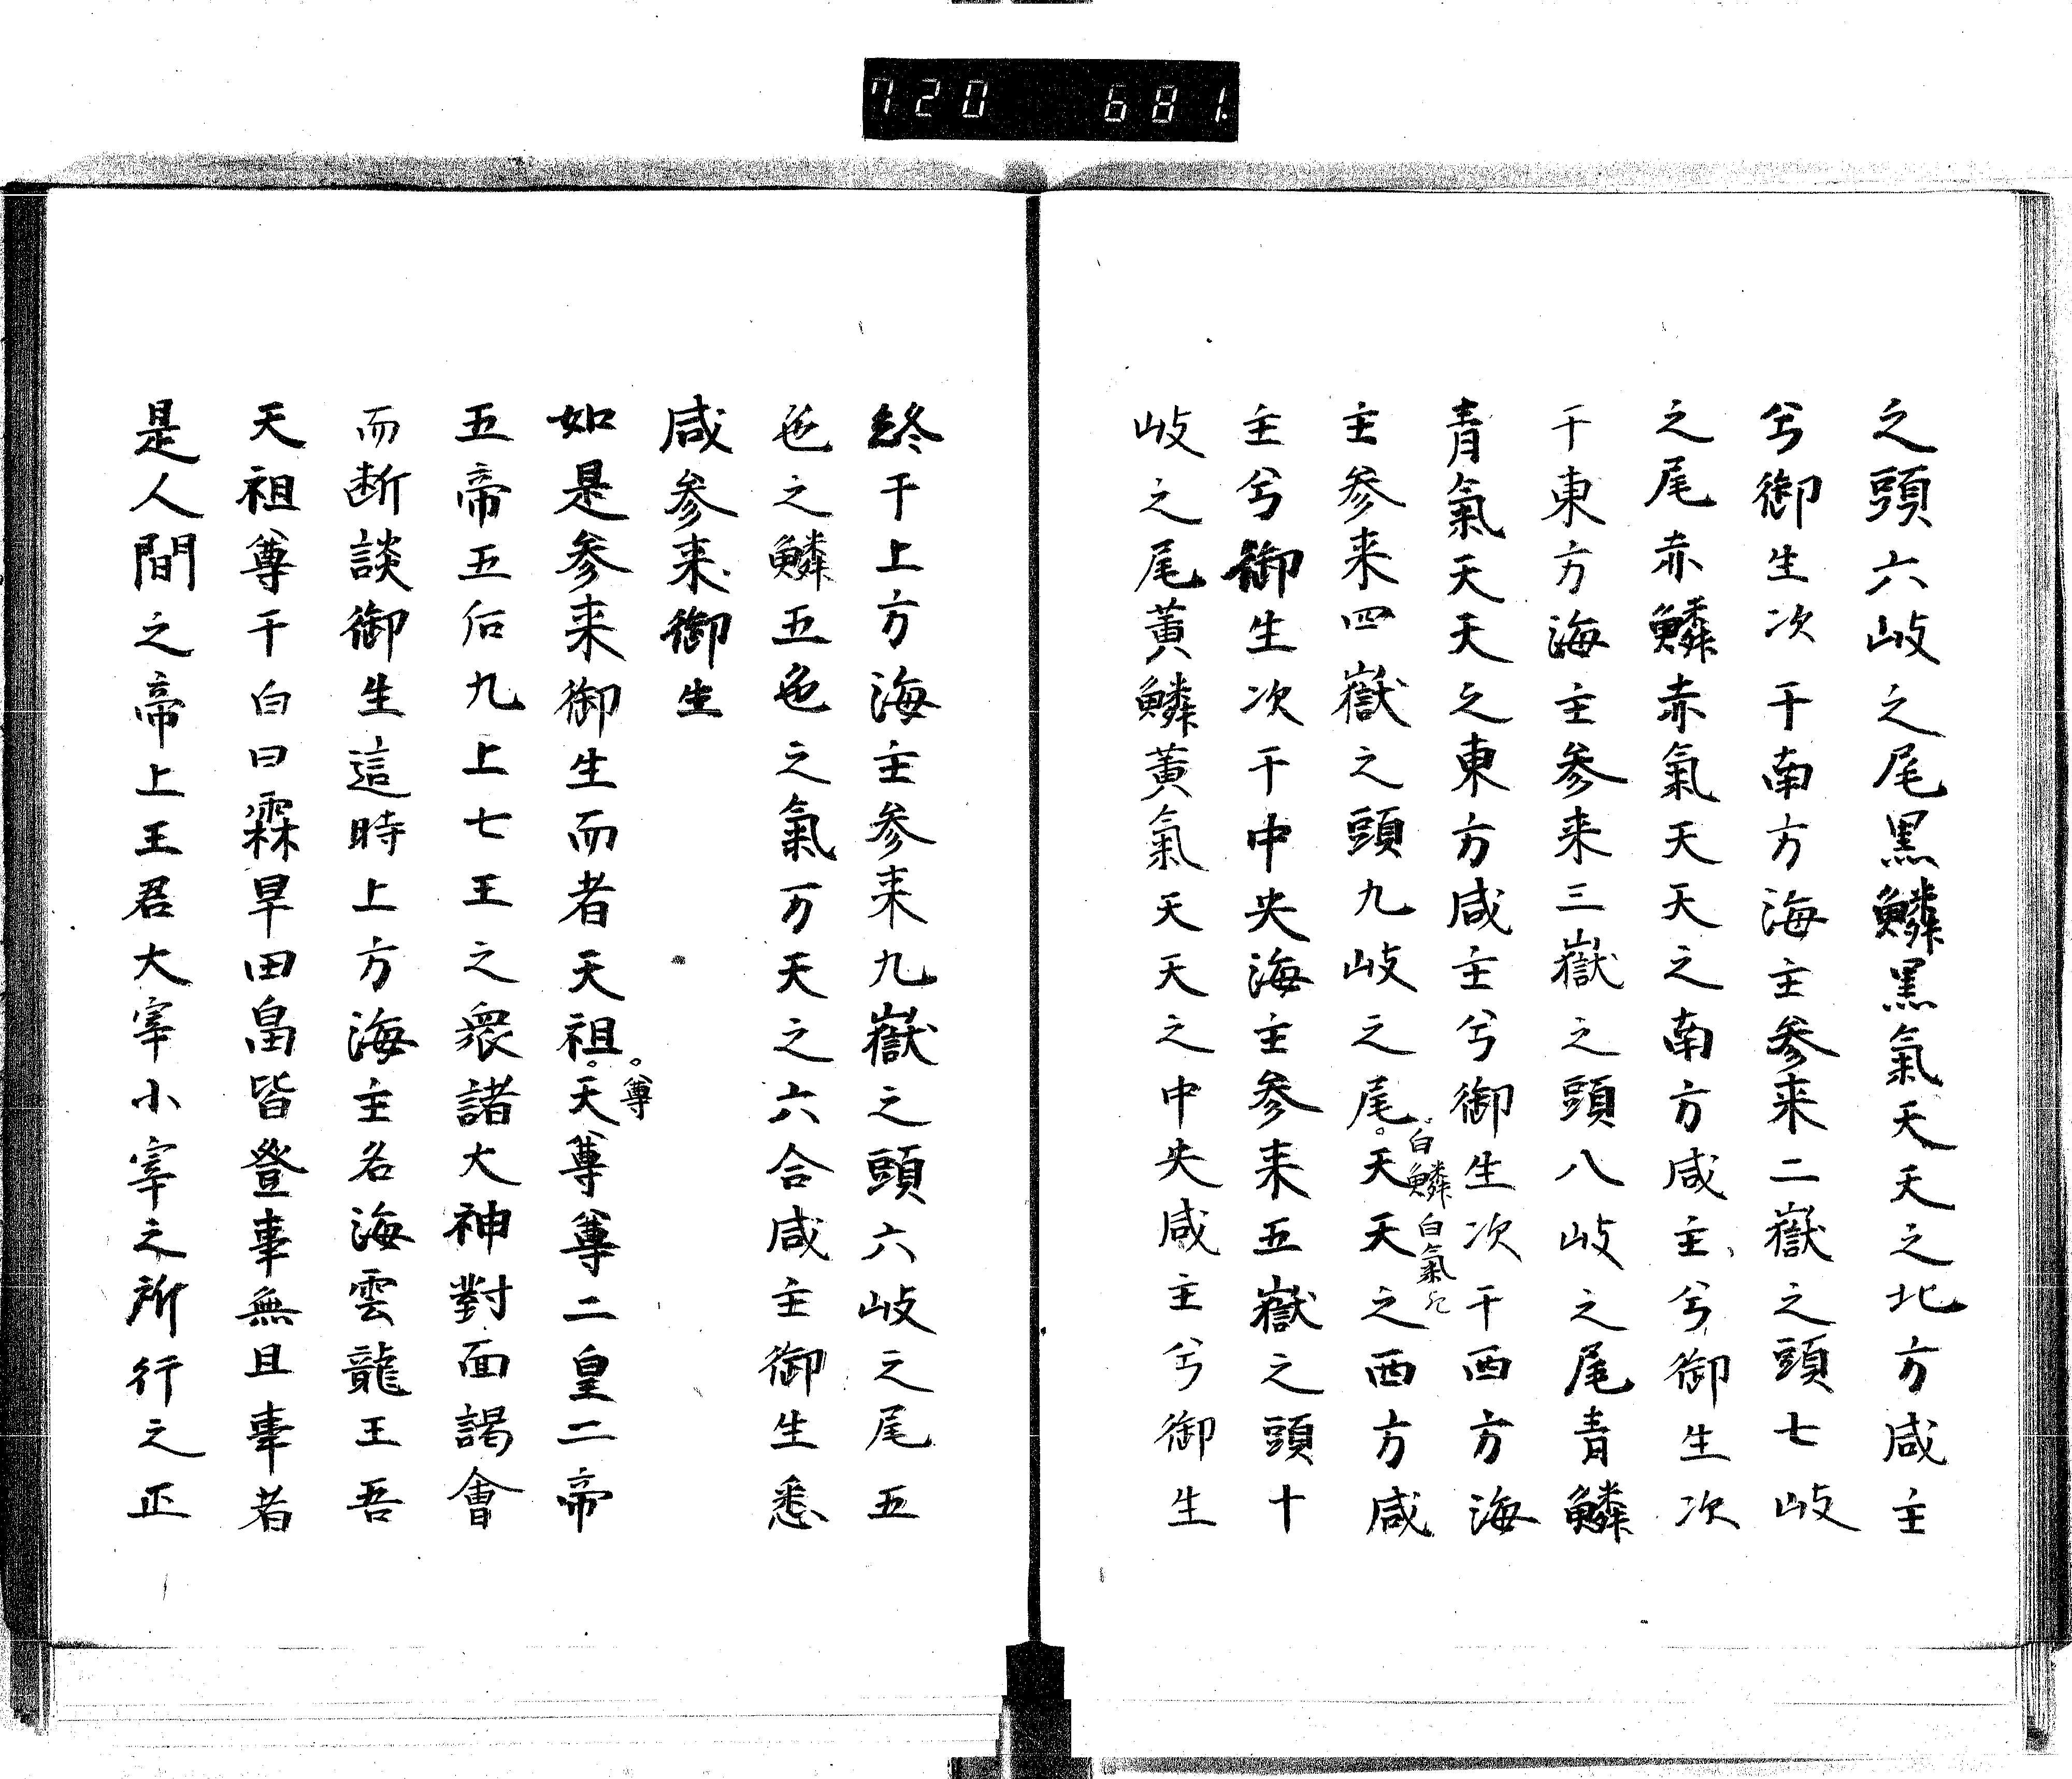 720 681
之頭六岐之尾黒鱗黒氣天天之北方咸主
兮御生次于南方海主参来二嶽之頭七岐
之尾赤鱗赤氣天天之南方咸主兮御生次
于東方海主参来三嶽之頭八岐之尾青鱗
青氣天天之東方咸主兮御生次于西方海
主参来四嶽之頭九岐之尾。天天之西方咸
。白鱗白氣
主兮御生次于中央海主参来五嶽之頭十
岐之尾黄鱗黄氣天天之中央咸主兮御生
終于上方海主参来九嶽之頭六岐之尾五
色之鱗五色之氣万天之六合咸主御生悉
咸参来御生
如是参来御生而者天祖。天尊尊二皇二帝
。尊
五帝五后九上七王之衆諸大神對面謁會
而断談御生這時上方海主名海雲龍王吾
天祖尊于白曰霖旱田畠皆登事無且事者
是人間之帝上王君大宰小宰之所行之正